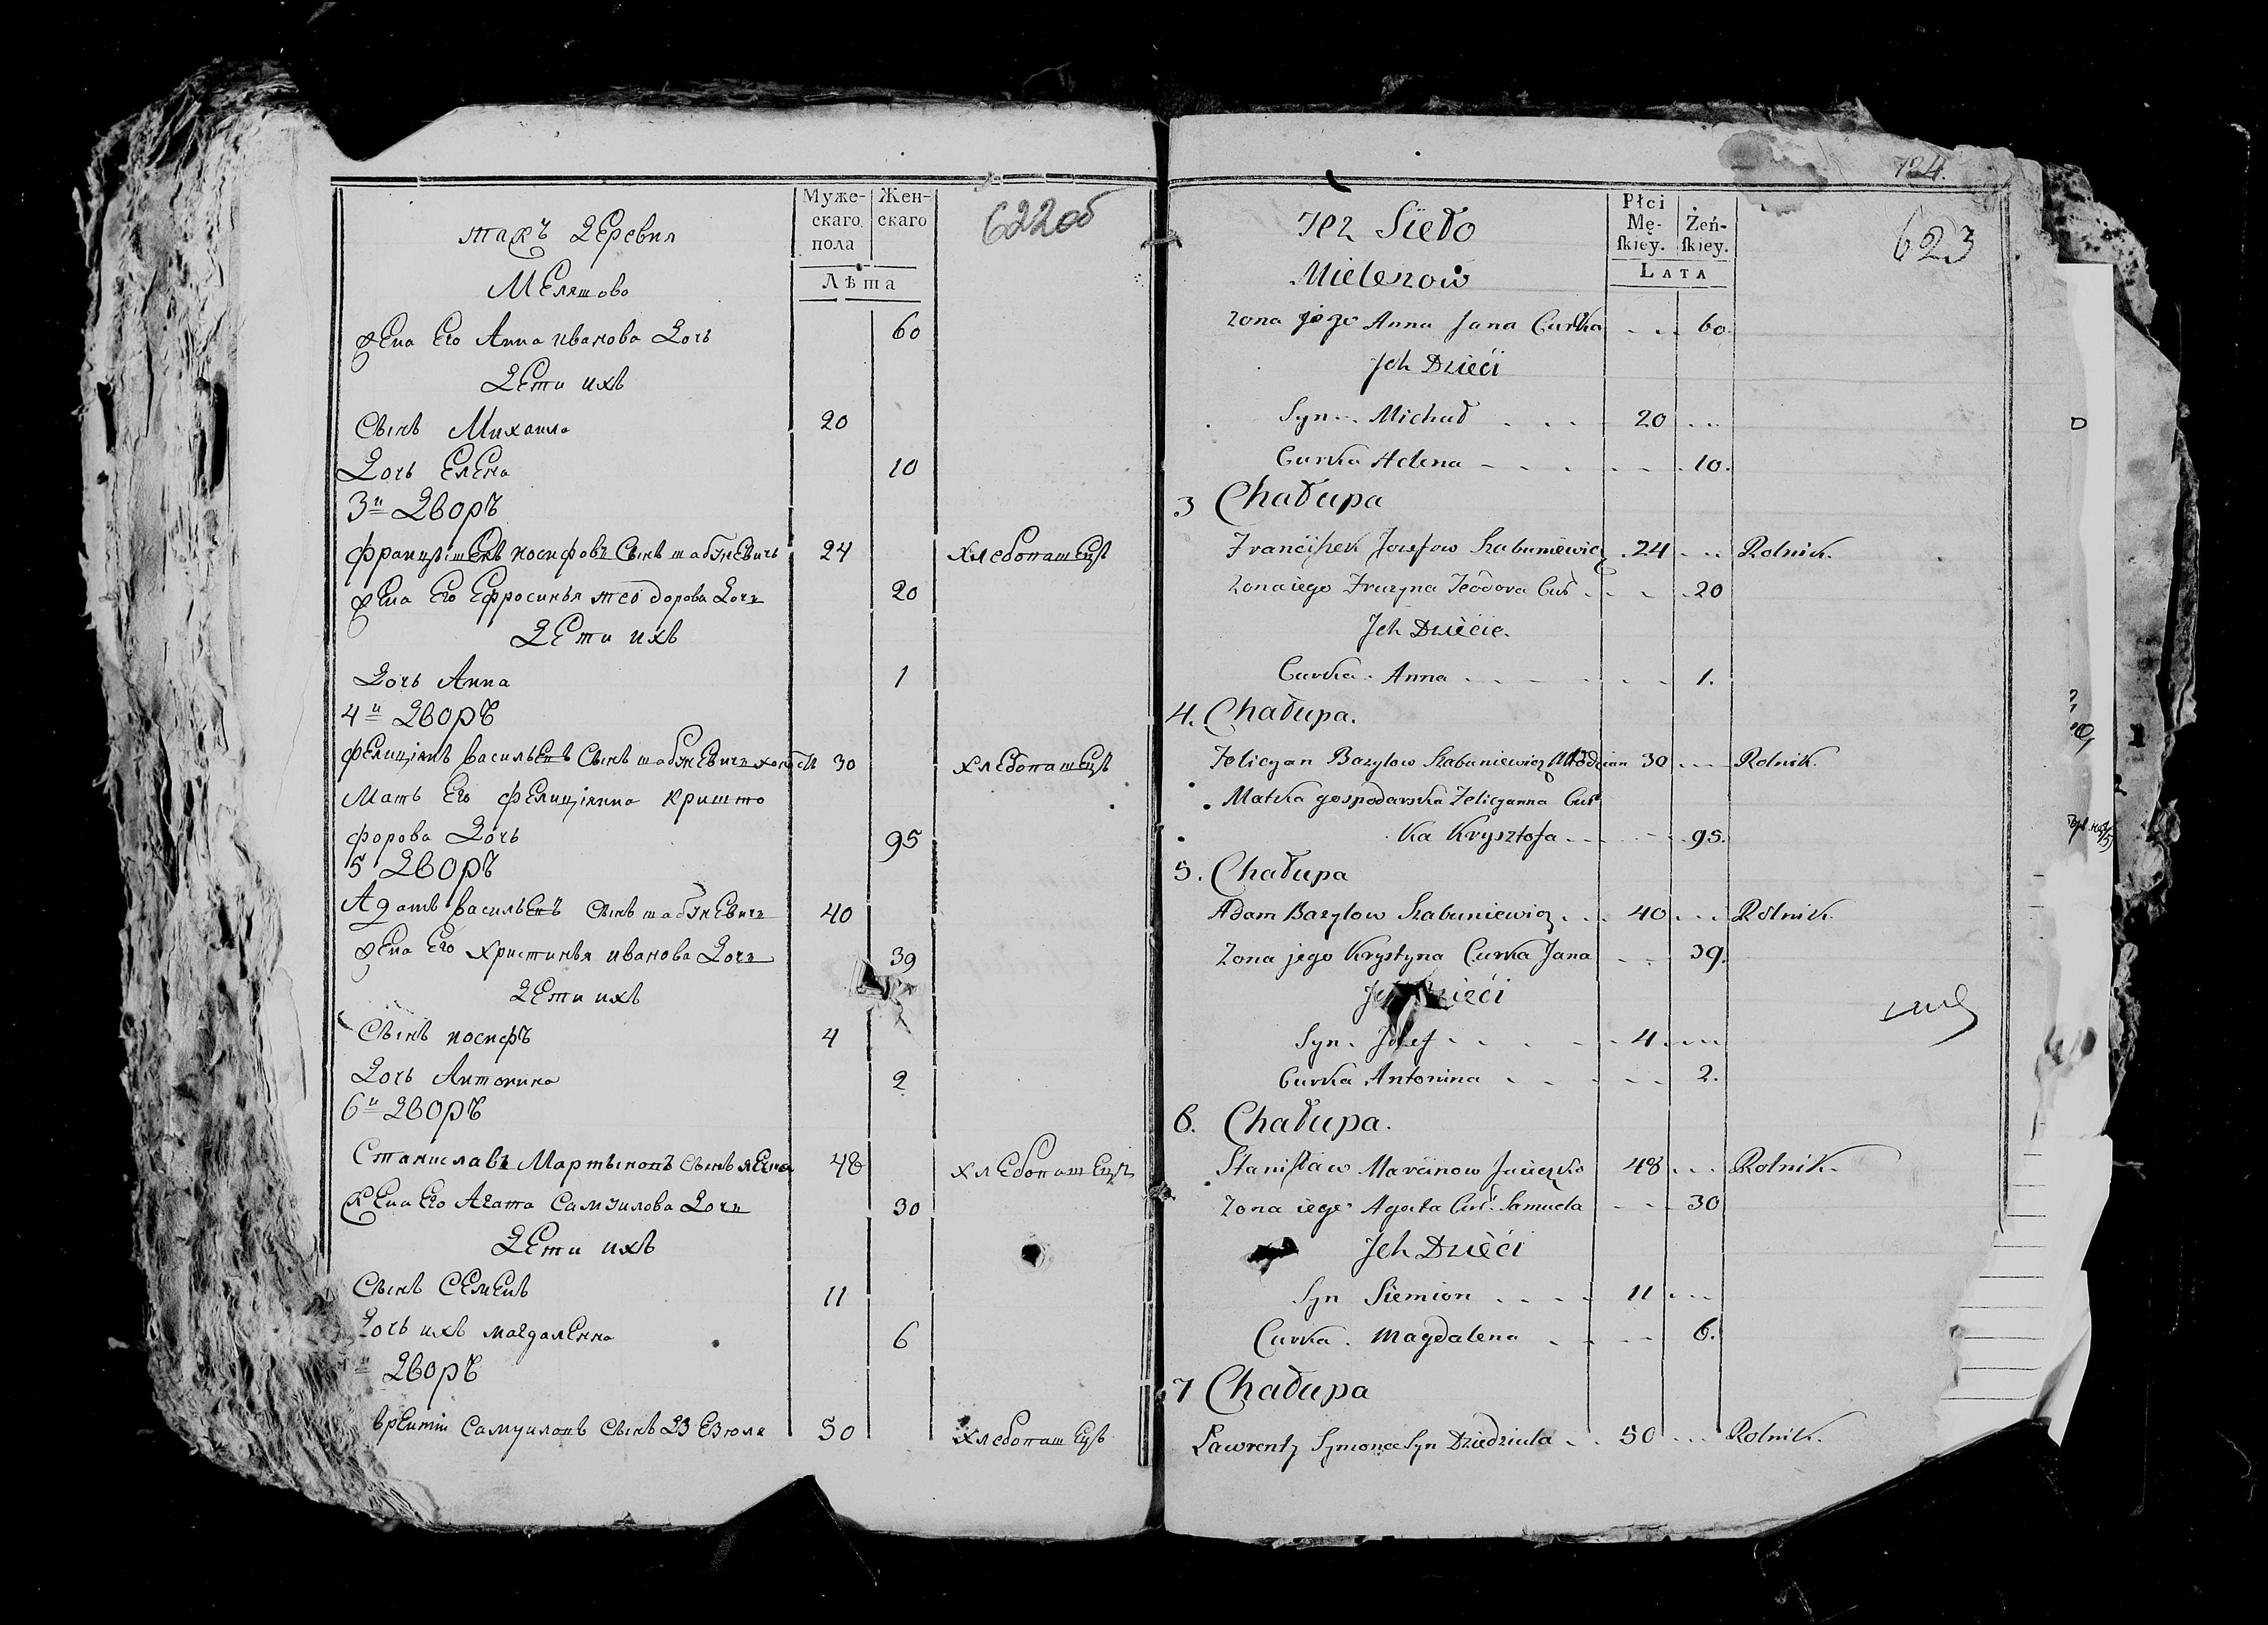 Муже-
скаго
пола
Жен-
скаго
Лѣта
622об
такъ Деревня
Меляшово
жена Его Анна иванова Дочь 60
Дети ихъ
Сынъ Михаила 20
Дочь Елена 10
3й Дворъ
францишекъ иосифовъ Сынъ шабуневичь 24 хлебопашецъ
жена Его Ефросинья теодорова Дочь 20
Дети ихъ
Дочь Анна 1
4й Дворъ
фелициянъ васильевъ Сынъ шабуневичь 30 хлебопашецъ
Мать Его фелициянна кришто
форова Дочь 95
5 Дворъ
Адамъ васильевъ сынъ шабуневичь 40
жена Его христинья иванова Дочь 39
Дети ихъ
Сынъ иосифъ 4
Дочь Антонина 2
6й Дворъ
Станиславъ Мартыновъ сынъ 48 хлебопашецъ
жена Его Агата Самуилова Дочь 30
Дети ихъ
Сынъ Семенъ 11
Дочь ихъ магдаленна 6
й Дворъ
Самуиловъ Сынъ Дзезюля 50 хлебопашецъ
724.
Płci
Mę-
skiey.
Żeń-
skiey.
LATA
623
Jez Sieło
Mielerow
Zona jego Anna Jana Curka 60.
Jch Dzieci
Syn Michał 20
Curka Helena 10.
3 Chałupa
Franciszek Jozefow Szabuniewicz 24 Rolnik.
Zona iego Fruzyna Teodora Cur. 20
Jch Dziecie.
Curka Anna 1.
4. Chałupa.
Felicyan Bazylow Szabuniewicz Młodzian 30 Rolnik.
Matka gospodarska Felicyanna Cur
ka Krysztofa 95.
5. Chałupa
Adam Bazylow Szabuniewicz 40 Rolnik.
Zona jego Krystyna Curka Jana 39.
Jch Dzieci
Syn. Jozef 4
Curka Antonina 2.
6. Chałupa.
Stanisław Marcinow 48 Rolnik.
Zona iego Agata Cur. Samuela 30
Jch Dzieci
Syn Siemion 11
Curka. Magdalena 6.
7 Chałupa
Ławrenty Syn Dziedziula 50 Rolnik.